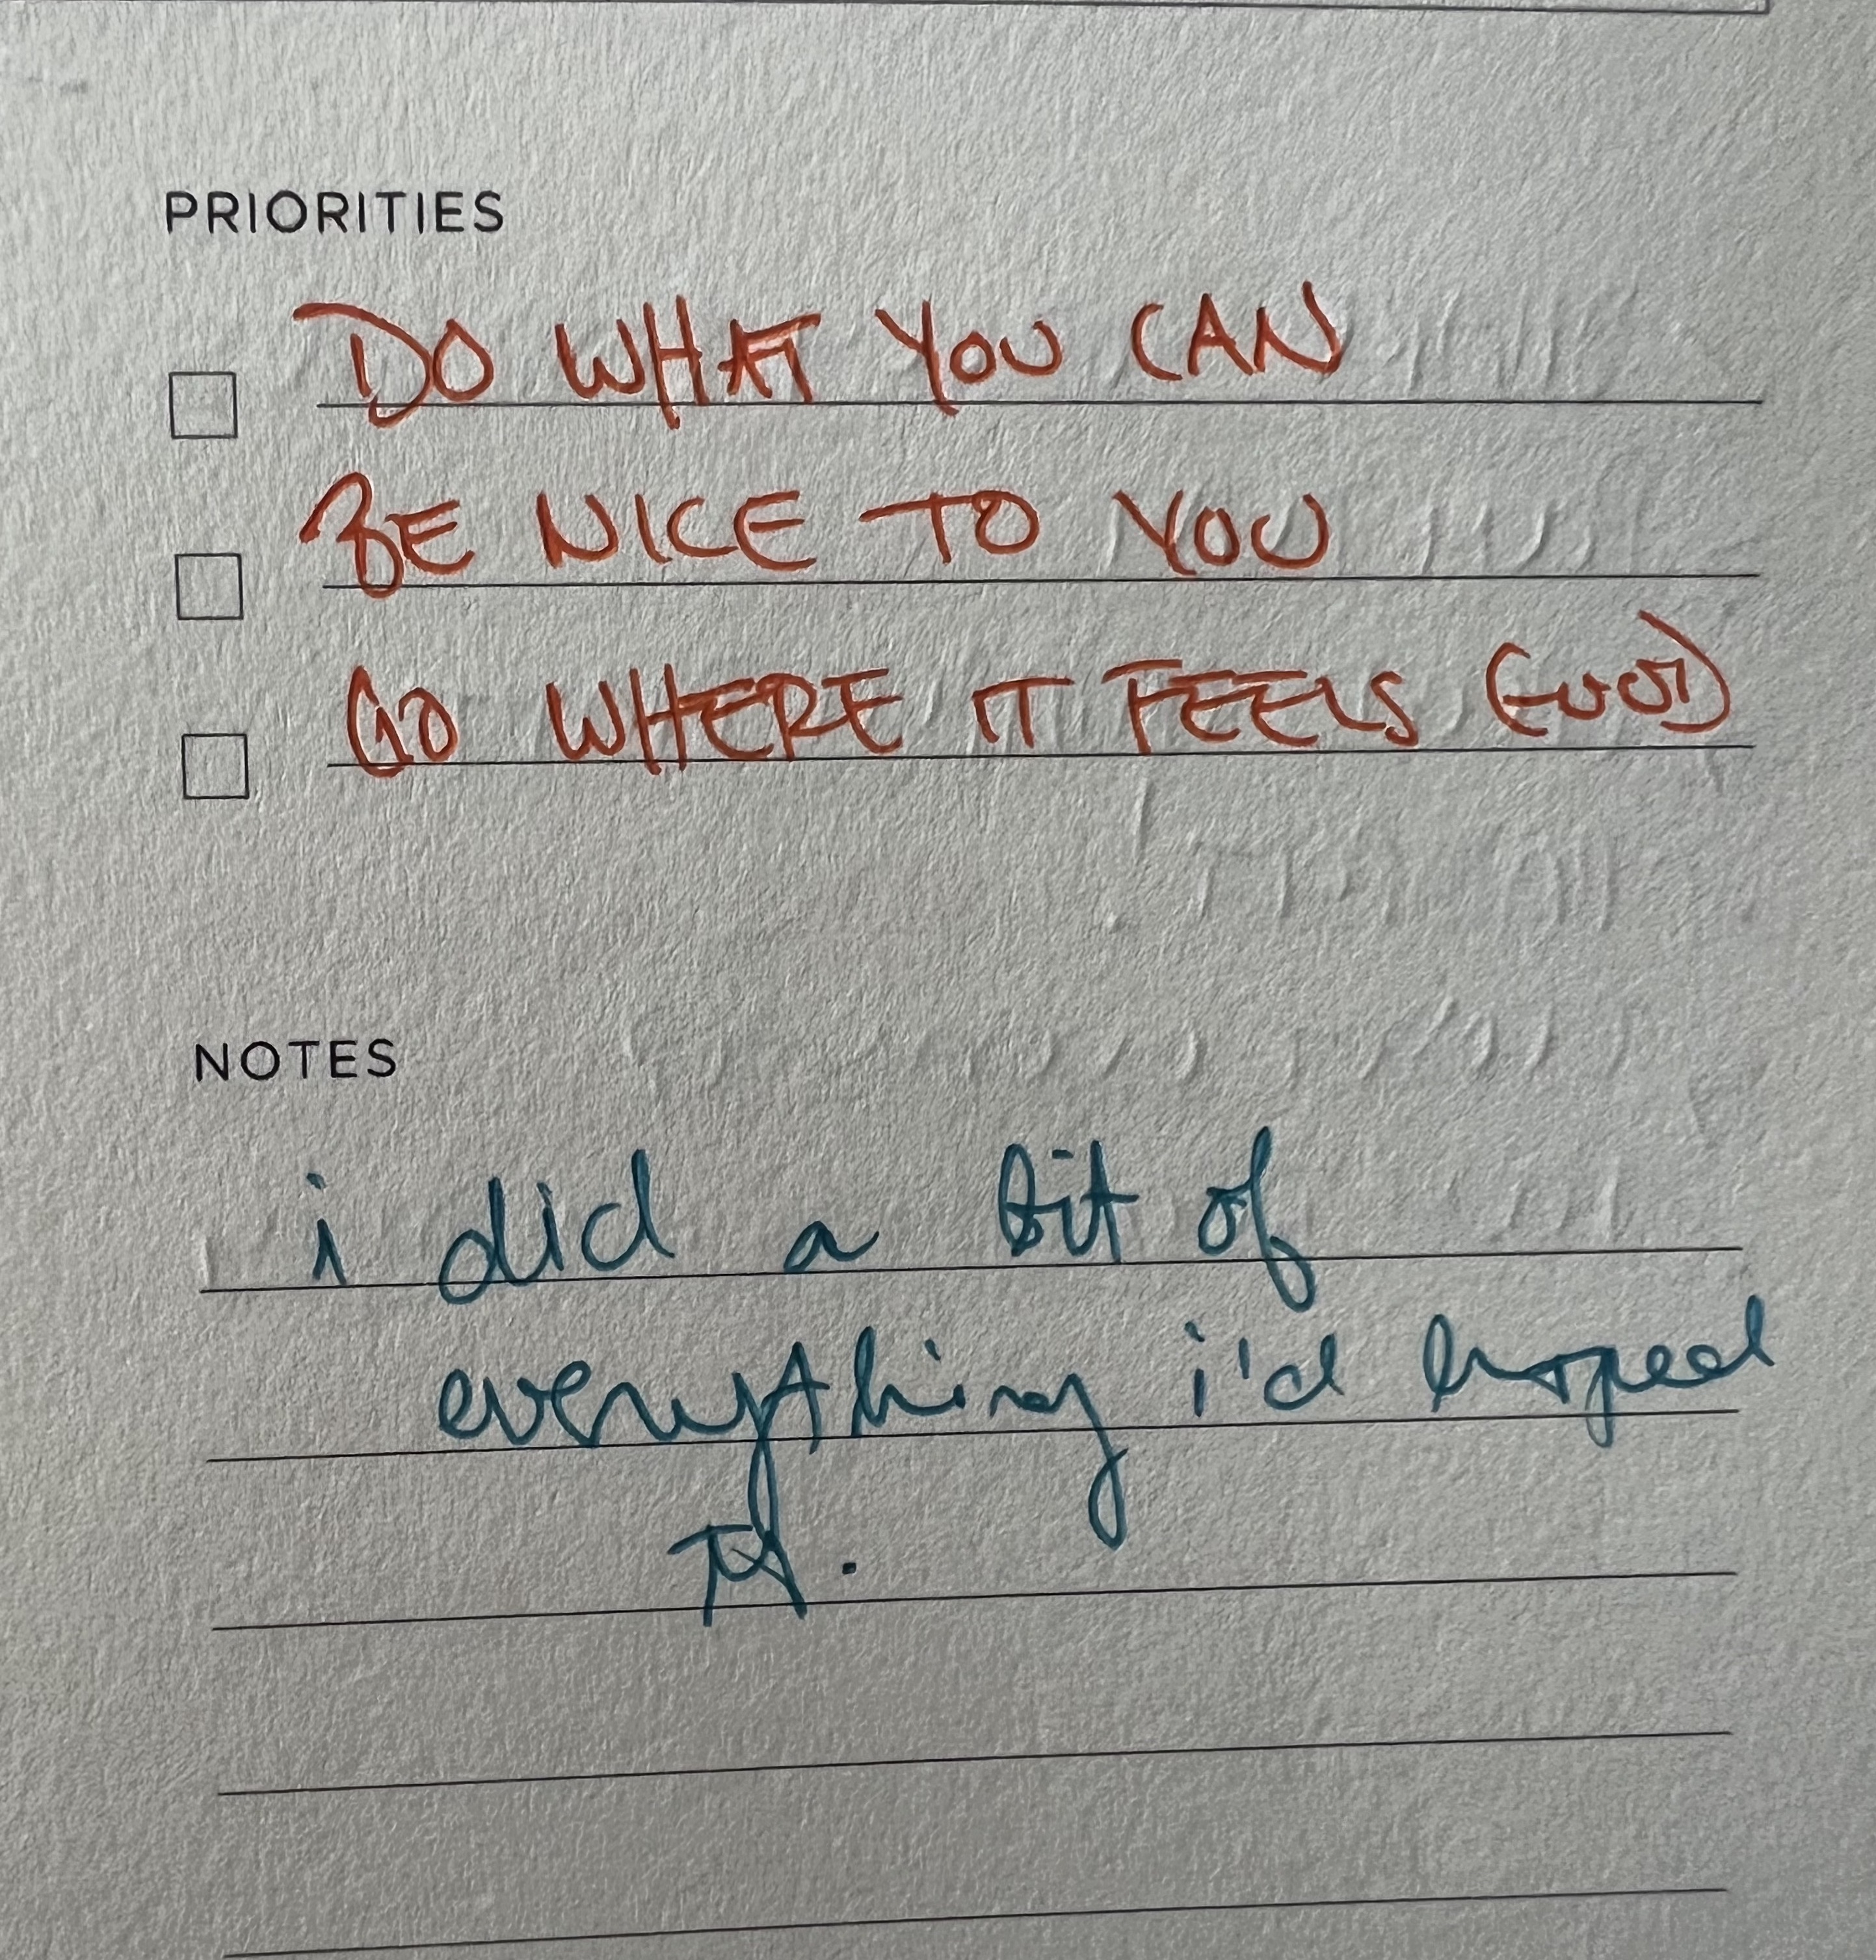 PRIORITIES
DO WHAT YOU CAN
BE NICE TO YOU
GO WHERE IT FEELS GOOD
NOTES
i did a bit of
everything i'd hoped
to.